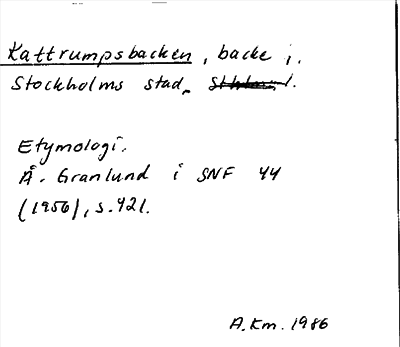 Kattrumpsbacken, backe i.
Stockholms stad. Sthlms l.
Etymologi.
Å. Granlund i SNF 44
(1956), s. 421.
A.Km. 1986